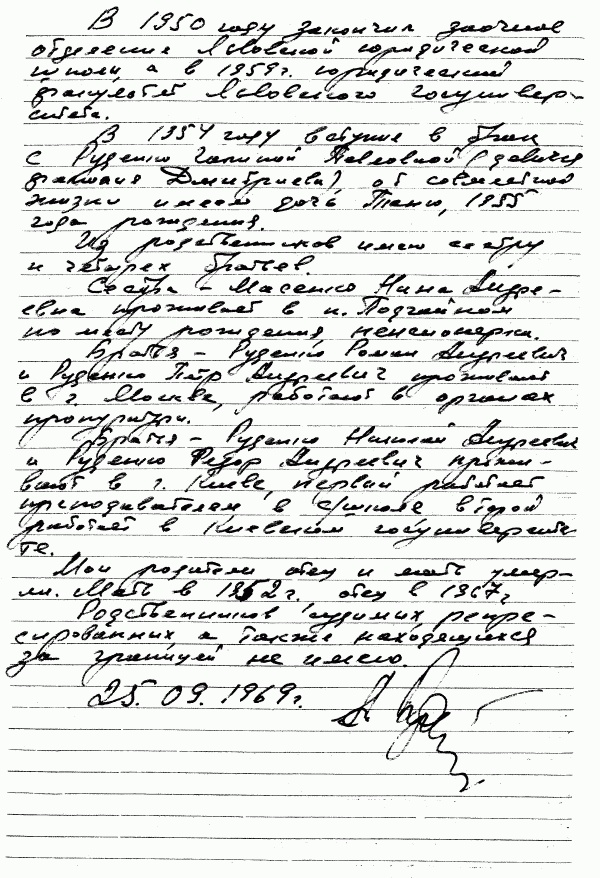 В 1950 году закончил заочное
отделение Львовской юридической
школы, а в 1959 г. юридический
факультет Львовского госунивер-
ситета.
В 1954 году вступил в брак
с Руденко Галиной Павловной (девичья
фамилия Дмитриева), от совместной
жизни имеем дочь Таню, 1955
года рождения.
Из родственников имею сестру
и четырех братьев.
Сестра - Масенко Нина Андре-
евна проживает в н. Подгайном
по месту рождения, пенсионерка.
Братья - Руденко Роман Андреевич
и Руденко Пётр Андреевич проживают
в г. Москва, работают в органах
прокуратуры.
Братья - Руденко Николай Андреевич
и Руденко Федор Андреевич прожи-
вают в г. Киеве, первый работает
преподавателем в с/школе второй
работает в Киевском госуниверсите-
те.
Мои родители отец и мать умер-
ли. Мать в 1962 г. отец в 1967 г
Родственников судимых репре-
сированных а также находящихся
за границей не имею.
25. 09. 1969 г.